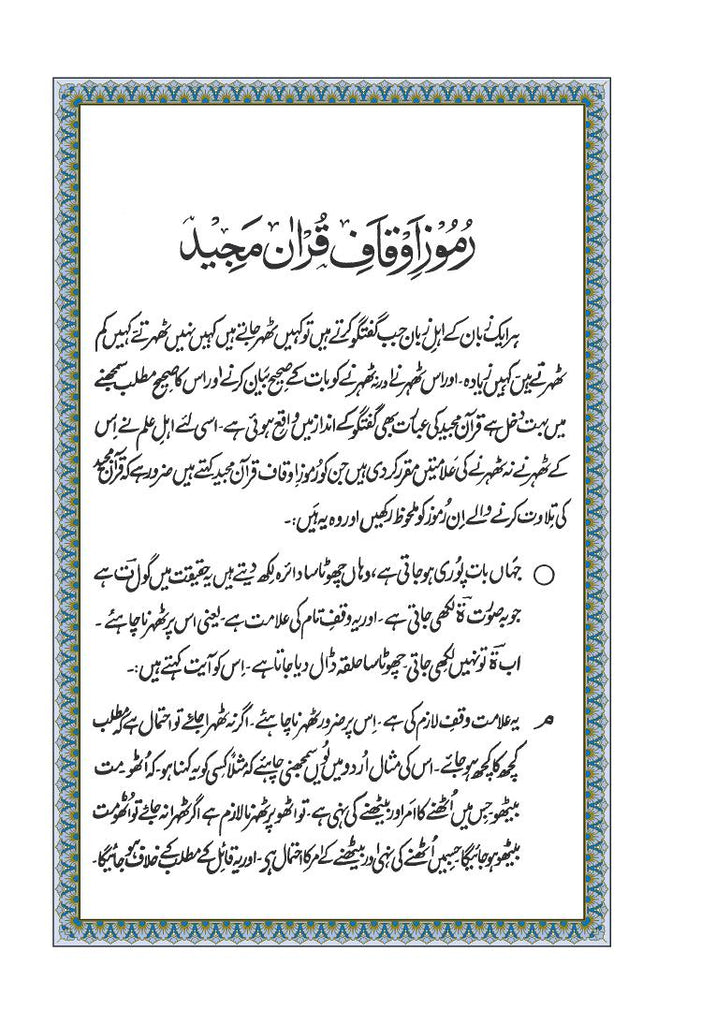 رُمُوْزِ اَوْقَافِ قُرْاٰن مَجِیْد
ہر ایک زبان کے اہلِ زبان جب گفتگو کرتے ہیں تو کہیں ٹھہر جاتے ہیں کہیں نہیں ٹھہرتے کہیں کم
ٹھہرتے ہیں کہیں زیادہ۔ اور اس ٹھہرنے اور نہ ٹھہرنے کو بات کے صحیح بیان کرنے اور اس کا صحیح مطلب سمجھنے
میں بہت دخل ہے قرآن مجید کی عبارت بھی گفتگو کے انداز میں واقع ہوئی ہے۔ اسی لئے اہلِ علم نے اِس
کے ٹھہرنے نہ ٹھہرنے کی علامتیں مقرر کردی ہیں جن کو رُموز اوقاف قرآن مجید کہتے ہیں ضرور ہے کہ قرآن مجید
کی تِلاوت کرنے والے اِن رُموز کو ملحوظ رکھیں اور وہ یہ ہَیں:۔
○ جہاں بات پُوری ہو جاتی ہے، وہاں چھوٹا سا دائرہ لکھ دیتے ہیں یہ حقیقت میں گول ت ہے
جو بہ صورت ۃ لکھی جاتی ہے۔ اور یہ وقفِ تام کی علامت ہے۔ یعنی اس پر ٹھہرنا چاہئے۔
اب ۃ تو نہیں لکھی جاتی۔ چھوٹا سا حلقہ ڈال دیا جاتا ہے۔ اِس کو آیت کہتے ہیں:۔
مـ یہ علامت وقفِ لازم کی ہے۔ اِس پر ضرور ٹھہرنا چاہئے۔ اگر نہ ٹھہرا جائے تو احتمال ہے کہ مطلب
کچھ کا کچھ ہو جائے۔ اس کی مثال اُردو میں یُوں سمجھنی چاہئے کہ مثلاً کسی کو یہ کہنا ہو۔ کہ اُٹھو۔ مت
بیٹھو۔ جس میں اُٹھنے کا امر اور بیٹھنے کی نہی ہے۔ تو اٹھو پر ٹھہرنا لازم ہے اگر ٹھہرا نہ جائے تو اُٹھو مت
بیٹھو ہو جائیگا۔ جس میں اُٹھنے کی نہی اور بیٹھنے کے امر کا احتمال ہی۔ اور یہ قائل کے مطلب کے خلاف ہو جائیگا۔